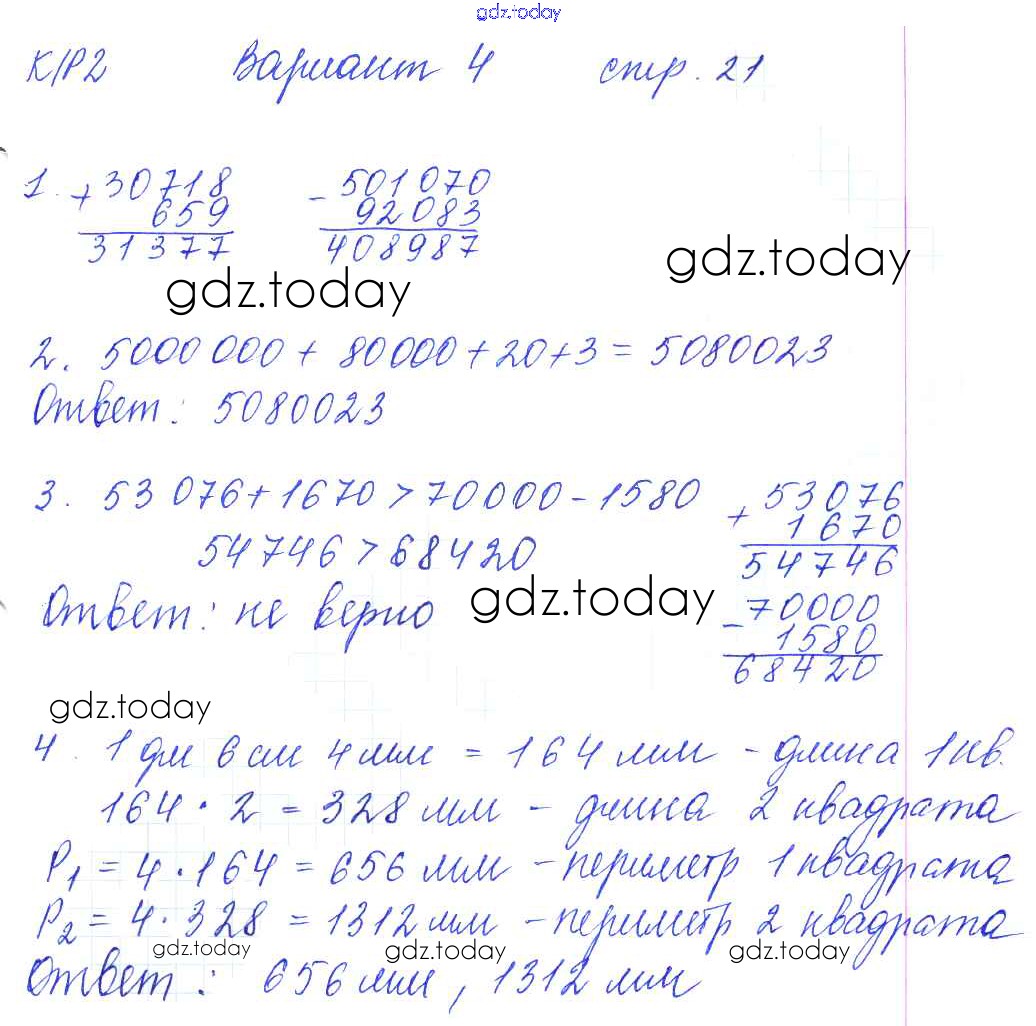 gdz.today
К/Р2 Вариант 4 стр. 21
1. + 30718 - 501070
659 92083
31377 408987
gdz.today
gdz.today
2. 5000 000 + 80000 + 20 + 3 = 5080023
Ответ: 5080023
3. 53 076 + 1670 > 70000 - 1580 + 53076
1670
54746 > 68420 54746
Ответ: не верно gdz.today - 70000
1580
68420
gdz.today
4. 1 дм 6 см 4 мм = 164 мм - длина 1 кв.
164 · 2 = 328 мм - длина 2 квадрата
P1 = 4 · 164 = 656 мм - периметр 1 квадрата
P2 = 4 · 328 = 1312 мм - периметр 2 квадрата
gdz.today gdz.today gdz.today
Ответ: 656 мм, 1312 мм